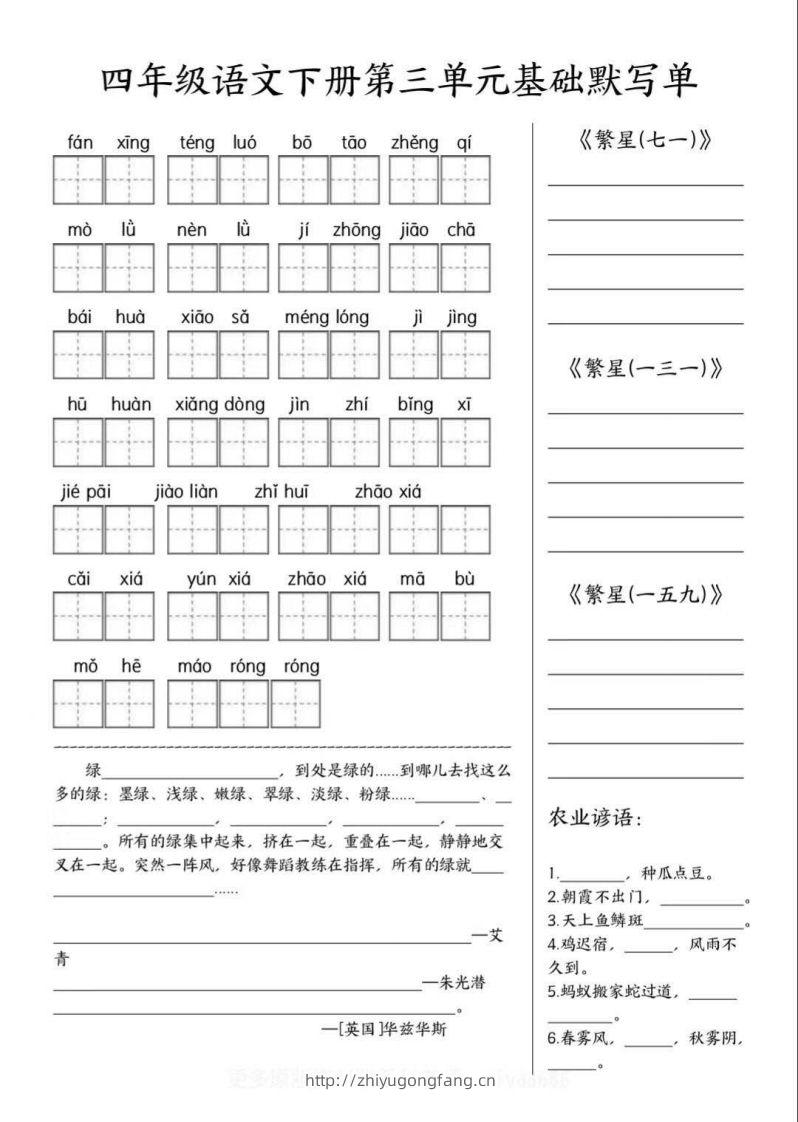 四年级语文下册第三单元基础默写单
fán xīng téng luó bō tāo zhěng qí
mò lǜ nèn lǜ jí zhōng jiāo chā
bái huà xiāo sǎ méng lóng jì jìng
hū huàn xiǎng dòng jìn zhí bǐng xī
jié pāi jiào liàn zhǐ huī zhāo xiá
cǎi xiá yún xiá zhāo xiá mā bù
mǒ hē máo róng róng
绿____________________，到处是绿的……到哪儿去找这么
多的绿：墨绿、浅绿、嫩绿、翠绿、淡绿、粉绿……________、__
______；__________，____________，____________，______
______。所有的绿集中起来，挤在一起，重叠在一起，静静地交
叉在一起。突然一阵风，好像舞蹈教练在指挥，所有的绿就____
____________________……
____________________—艾
青
____________________—朱光潜
____________________。
—[英国]华兹华斯
《繁星(七一)》
《繁星(一三一)》
《繁星(一五九)》
农业谚语：
1.________，种瓜点豆。
2.朝霞不出门，__________。
3.天上鱼鳞斑____________。
4.鸡迟宿，______，风雨不
久到。
5.蚂蚁搬家蛇过道，______
________。
6.春雾风，______，秋雾阴，
______。
http://zhiyugongfang.cn